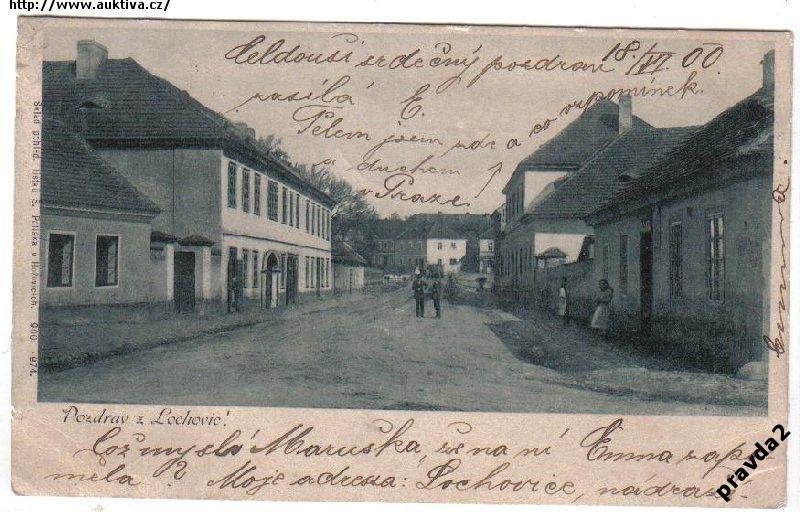 http://www.auktiva.cz/
Celdouši srdečný pozdrav 18/VI 00
zasílá E.
Tělem jsem zde a co vzpomínek.
a duchem
v Praze!
Emma
Sklad pohled. lístků S. Polláka v Hořovicích. 900 974.
Pozdrav z Lochovic!
Což myslí Maruška, že na ní Emma zapo
měla? Moje adresa: Lochovice, nádraží
pravda2